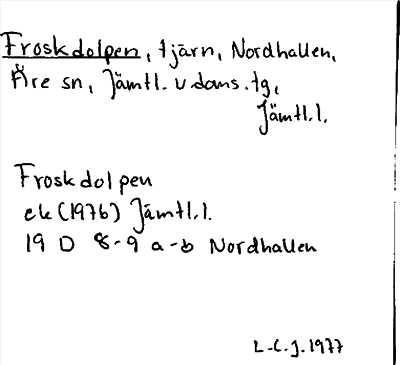 Froskdolpen, tjärn, Nordhallen,
Åre sn, Jämtl. v. doms. tg,
Jämtl.l.
Froskdolpen
ek (1976) Jämtl.l.
19 D 8-9 a-b Nordhallen
L-C.J. 1977